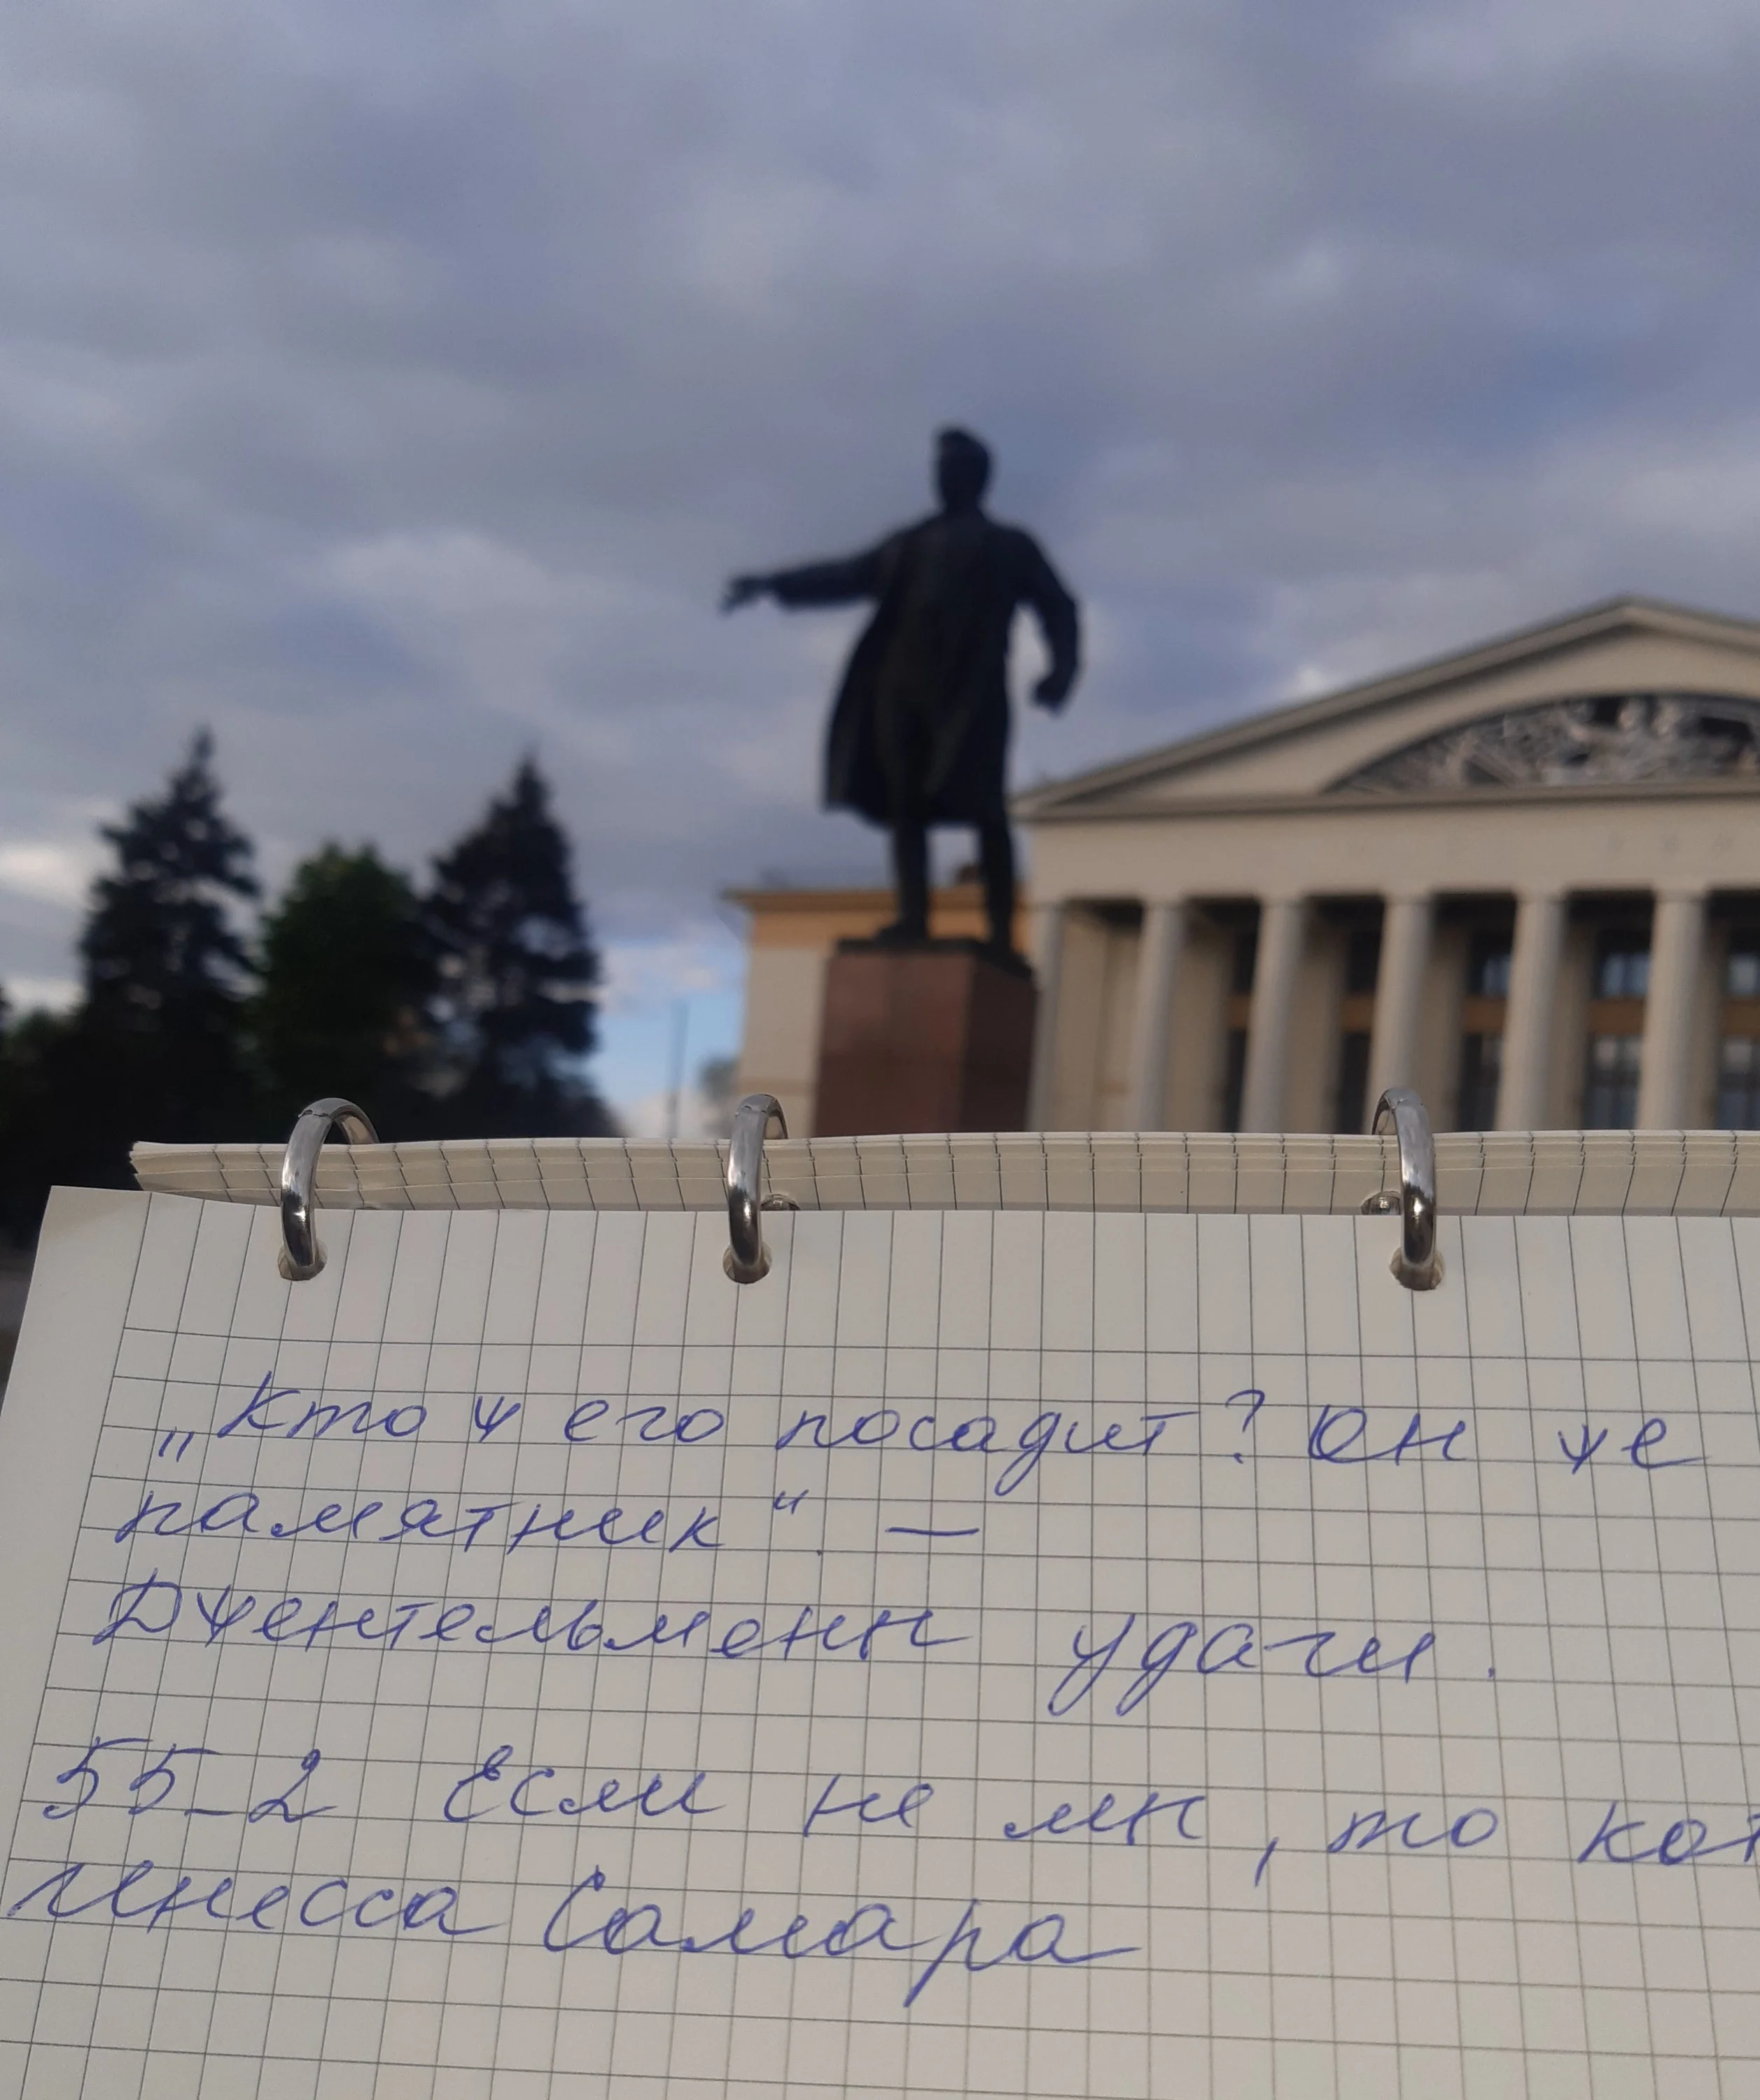 „Кто ж его посадит? Он же
памятник“. —
Джентельмены удачи.
55-2 Если не мы, то кот
инесса Самара